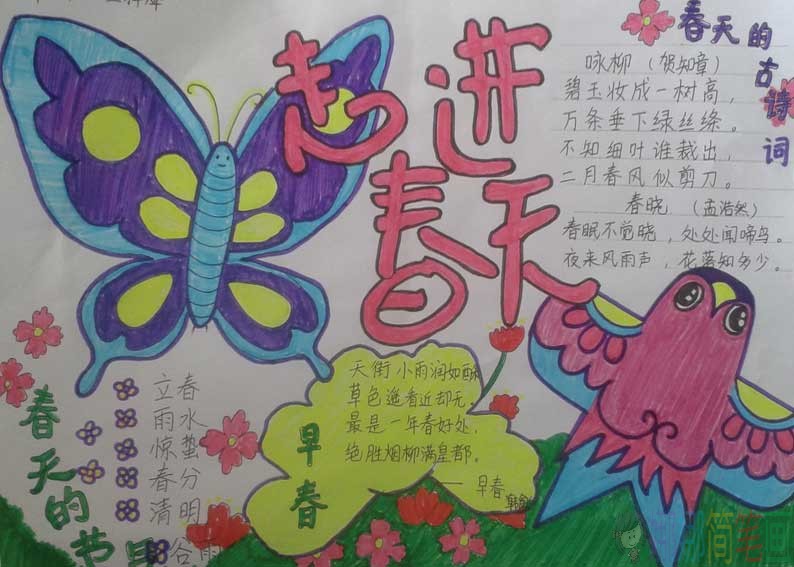 走进
春天
春天的古诗词
咏柳（贺知章）
碧玉妆成一树高，
万条垂下绿丝绦。
不知细叶谁裁出，
二月春风似剪刀。
春晓 （孟浩然）
春眠不觉晓，处处闻啼鸟。
夜来风雨声，花落知多少。
春天的节
立春
雨水
惊蛰
春分
清明
谷雨
早春
天街小雨润如酥
草色遥看近却无。
最是一年春好处，
绝胜烟柳满皇都。
——早春
简笔画